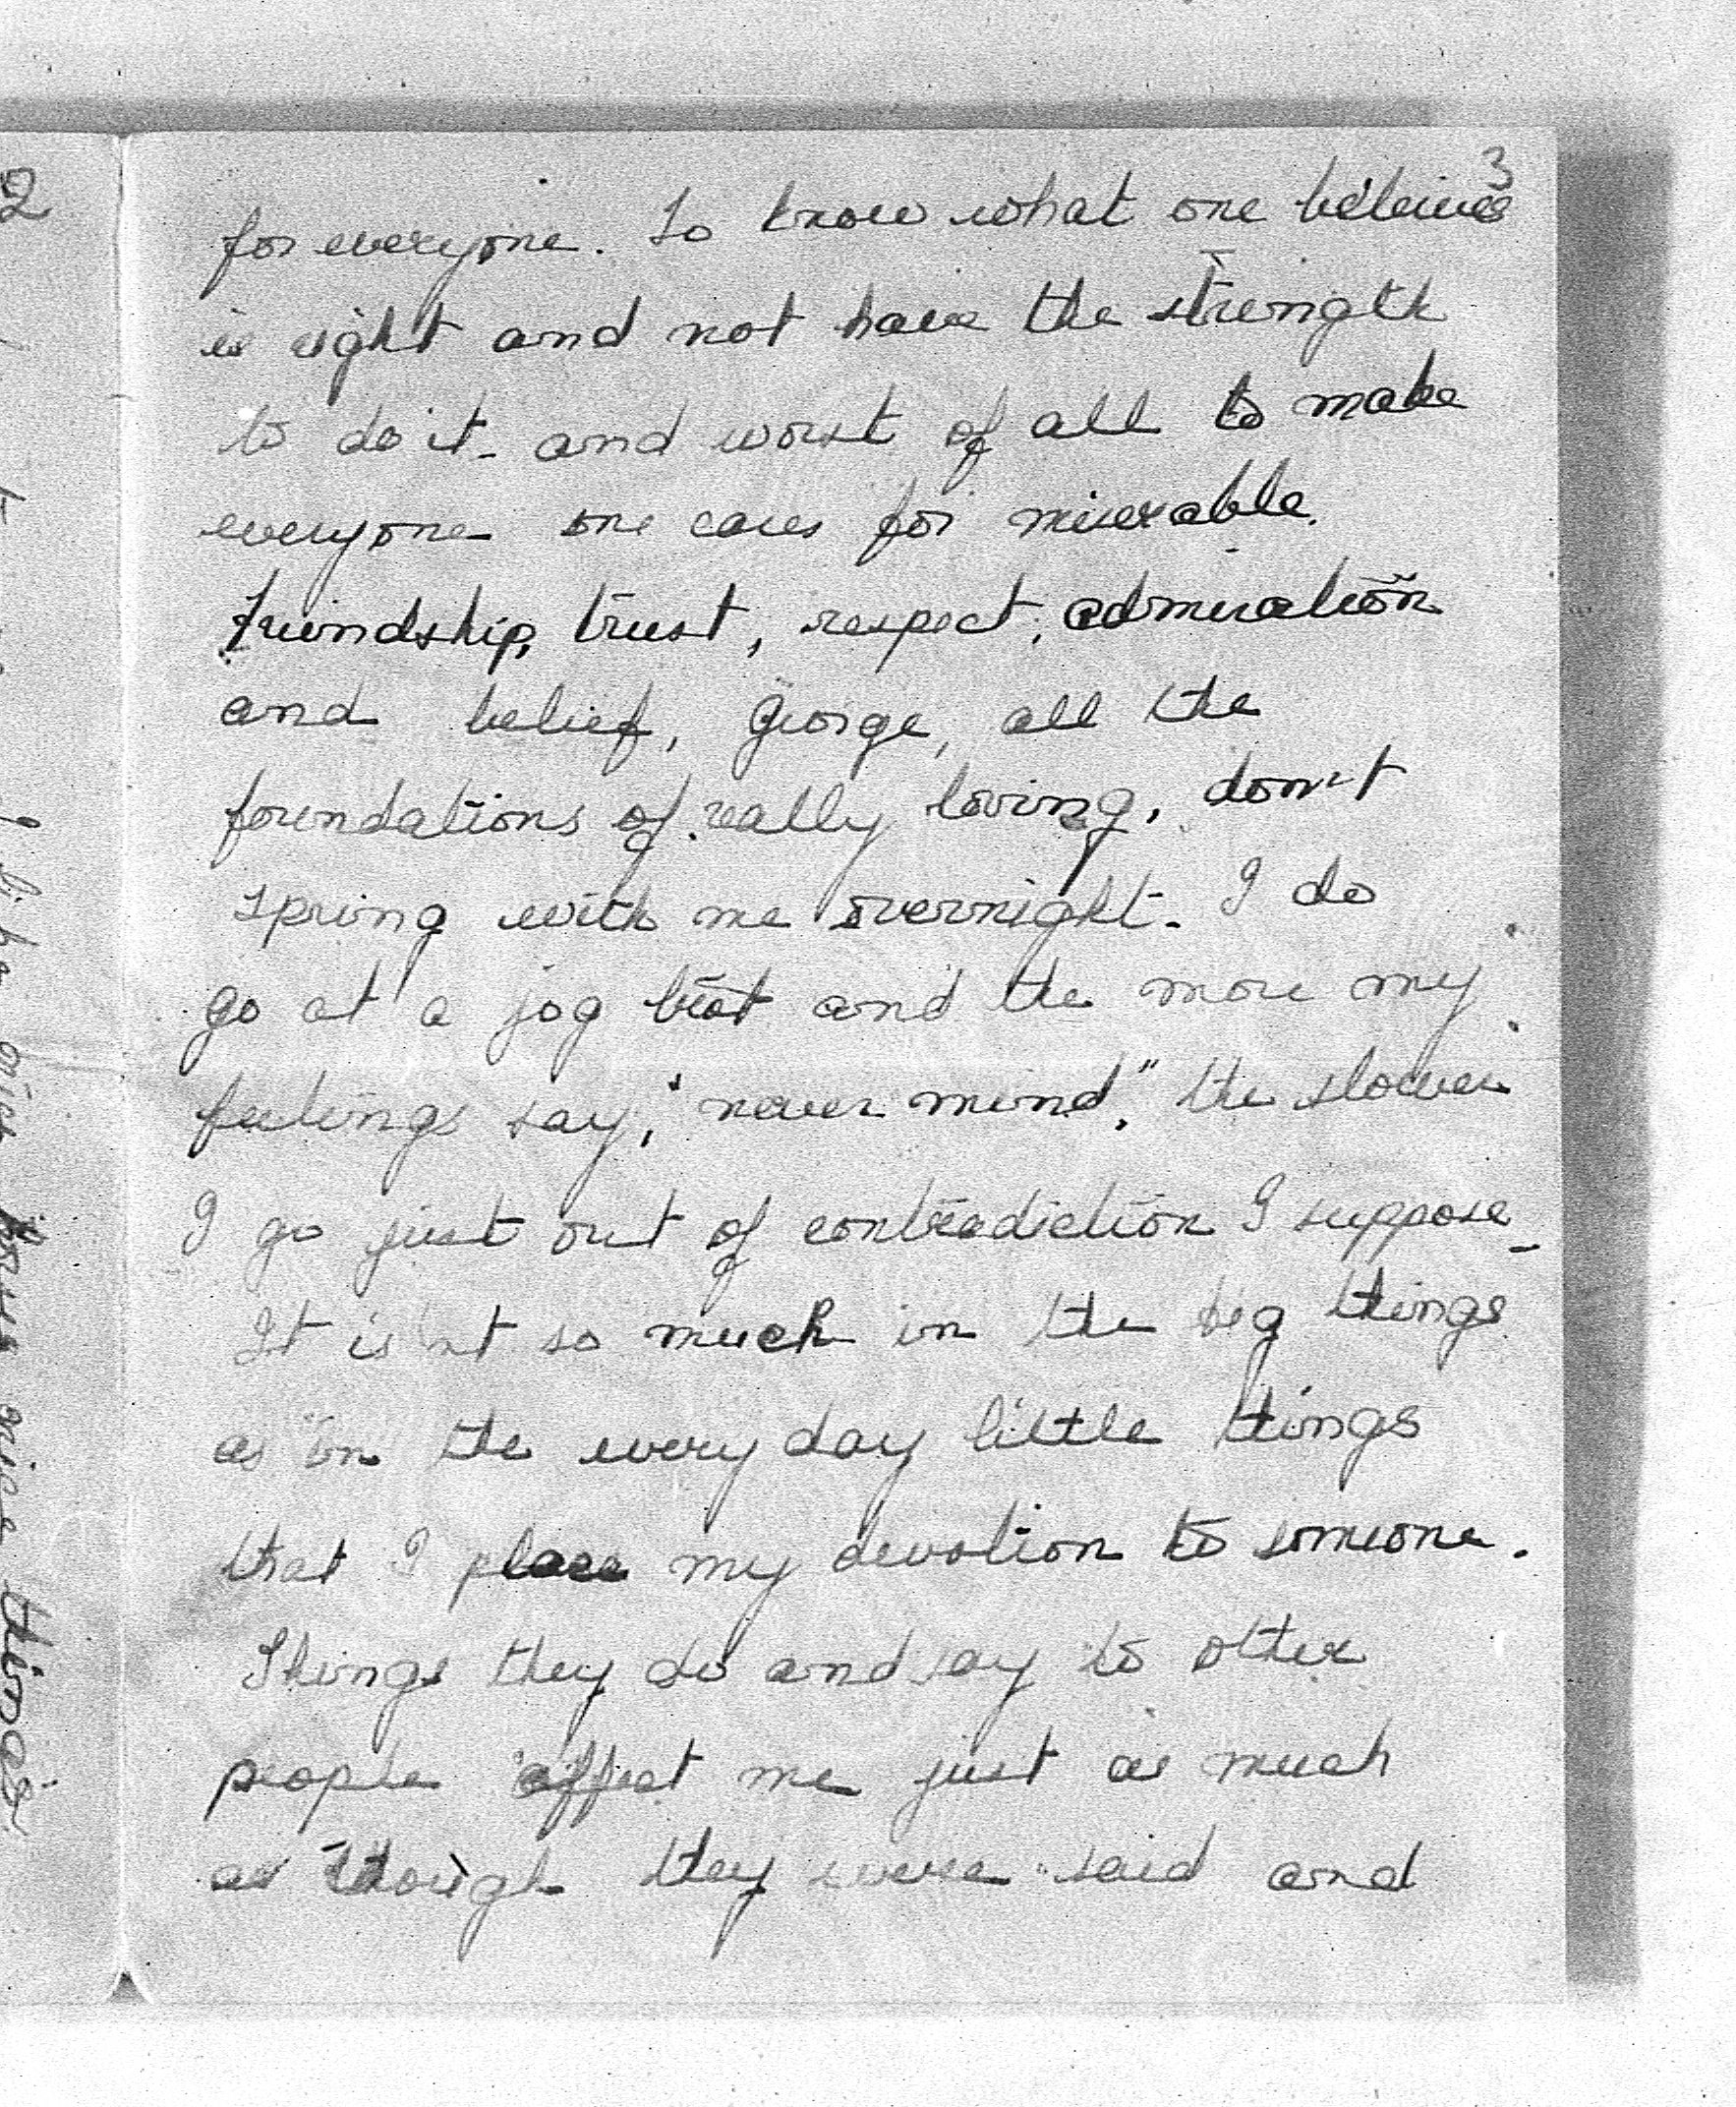 3
for everyone. To know what one believes
is right and not have the strength
to do it - and worst of all to make
everyone one cares for miserable.
Friendship, trust, respect, admiration
and belief, George, all the
foundations of really loving, don't
spring with me overnight - I do
go at a jog trot and the more my
feelings say, "never mind," the slower
I go just out of contradiction I suppose -
It isn't so much in the big things
as in the every day little things
that I place my devotion to someone.
Things they do and say to other
people affect me just as much
as though they were said and
2